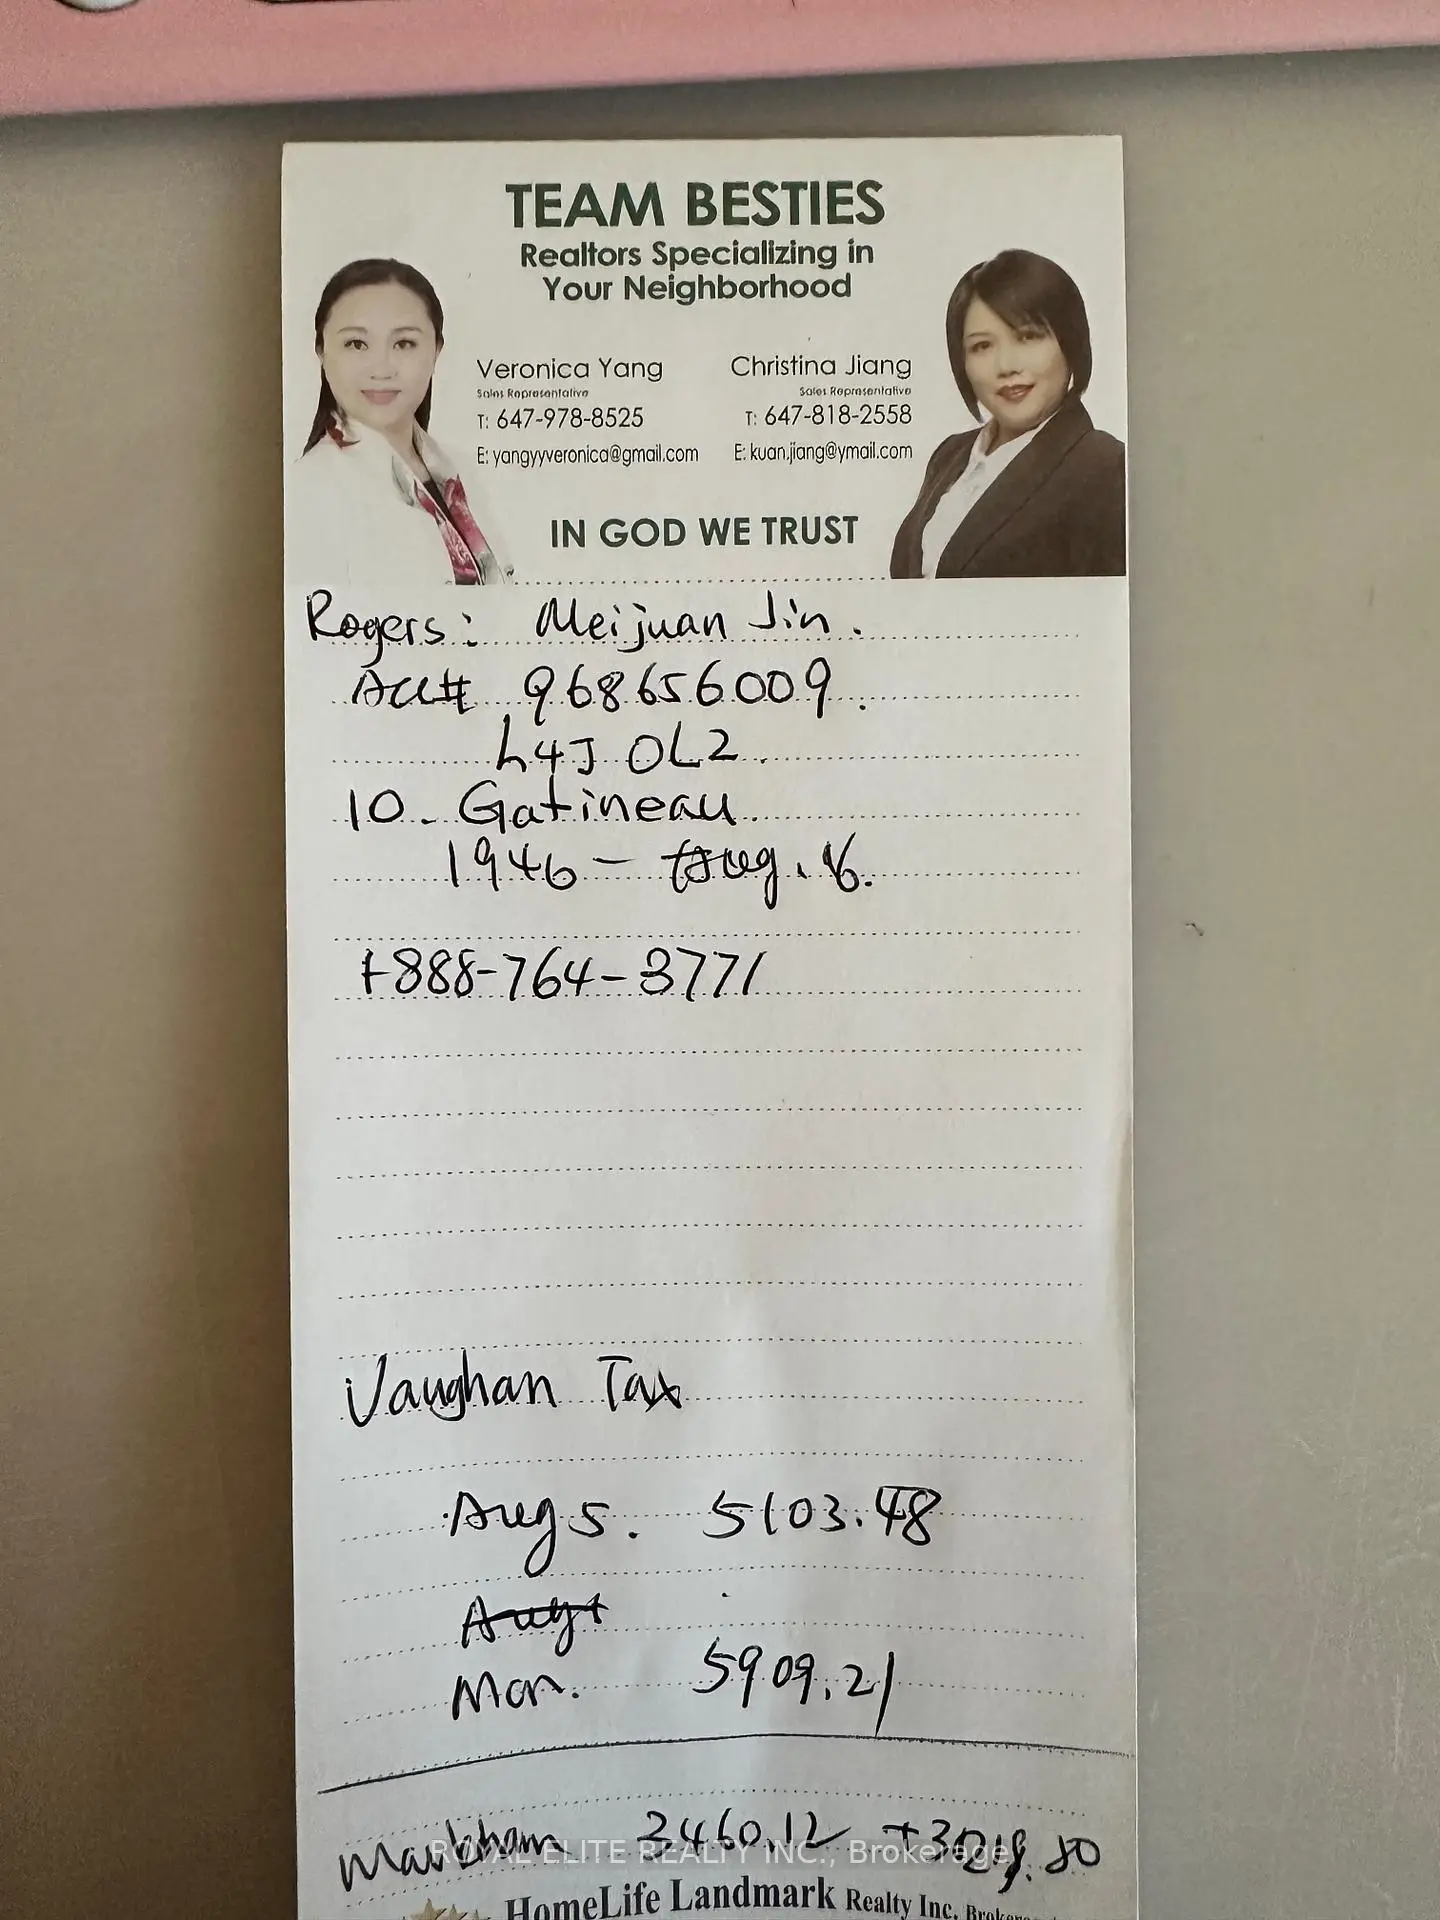 TEAM BESTIES
Realtors Specializing in
Your Neighborhood
Veronica Yang
Sales Representative
T: 647-978-8525
E: yangyyveronica@gmail.com
Christina Jiang
Sales Representative
T: 647-818-2558
E: kuan.jiang@ymail.com
IN GOD WE TRUST
Rogers: Meijuan Jin.
Acc# 968656009.
L4J 0L2.
10. Gatineau.
1946 - Aug. 16.
1-888-764-3771
Vaughan Tax
Aug 5. 5103.48
Mar. 5909.21
Markham 3460.12
ROYAL ELITE REALTY INC., Brokerage
HomeLife Landmark Realty Inc.